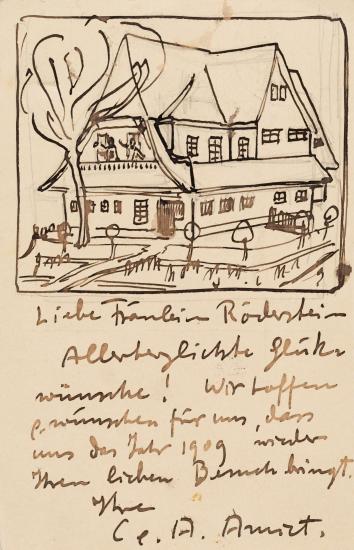 Liebe Fräulein Röderstein
Allerherzlichste Glück-
wünsche! Wir hoffen
&. wünschen für uns, dass
uns das Jahr 1909 wieder
Ihren lieben Besuch bringt.
Ihre
C. & A. Amiet.